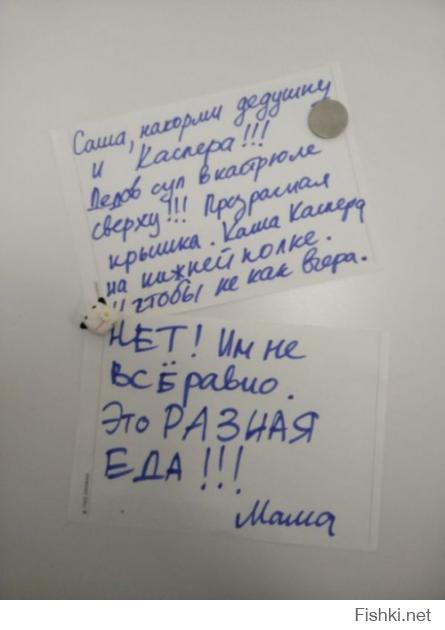 Саша, накорми дедушку
и Каспера!!!
Дедов суп в кастрюле
сверху!!! Прозрачная
крышка. Каша Каспера
на нижней полке.
И чтобы не как вчера.
НЕТ! Им не
ВСЁ равно.
Это РАЗНАЯ
ЕДА!!!
Мама
Fishki.net